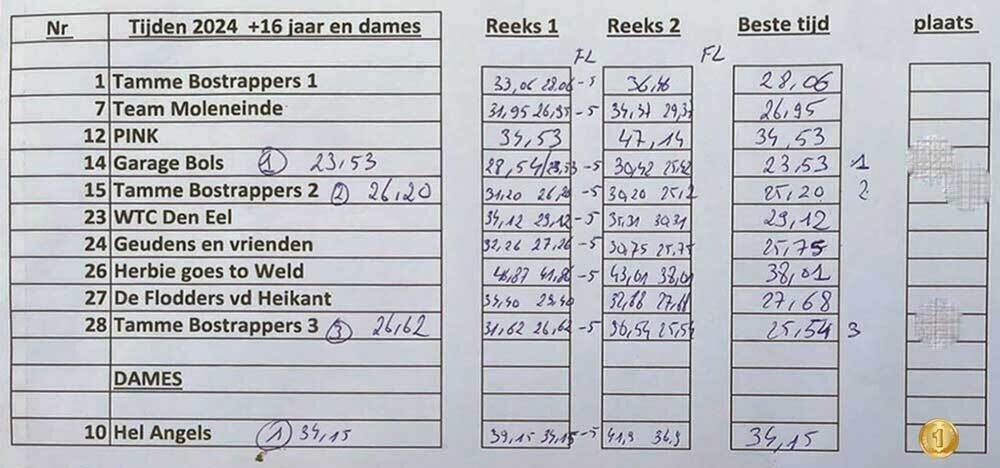 Nr Tijden 2024 +16 jaar en dames Reeks 1 Reeks 2 Beste tijd plaats
FL FL
1 Tamme Bostrappers 1 33,06 28,06 -5 36,46 28,06
7 Team Moleneinde 31,95 26,95 -5 34,37 29,37 26,95
12 PINK 34,53 47,14 34,53
14 Garage Bols 1 23,53 28,54/23,53 -5 30,42 25,42 23,53 1
15 Tamme Bostrappers 2 2 26,20 31,20 26,20 -5 30,20 25,2 25,20 2
23 WTC Den Eel 34,12 29,12 -5 35,31 30,31 29,12
24 Geudens en vrienden 32,26 27,26 -5 30,75 25,75 25,75
26 Herbie goes to Weld 46,87 41,86 -5 43,01 38,01 38,01
27 De Flodders vd Heikant 34,40 29,40 32,68 27,68 27,68
28 Tamme Bostrappers 3 3 26,62 31,62 26,62 -5 30,54 25,54 25,54 3
DAMES
10 Hel Angels 1 34,15 39,15 34,15 -5 41,9 36,9 34,15 1